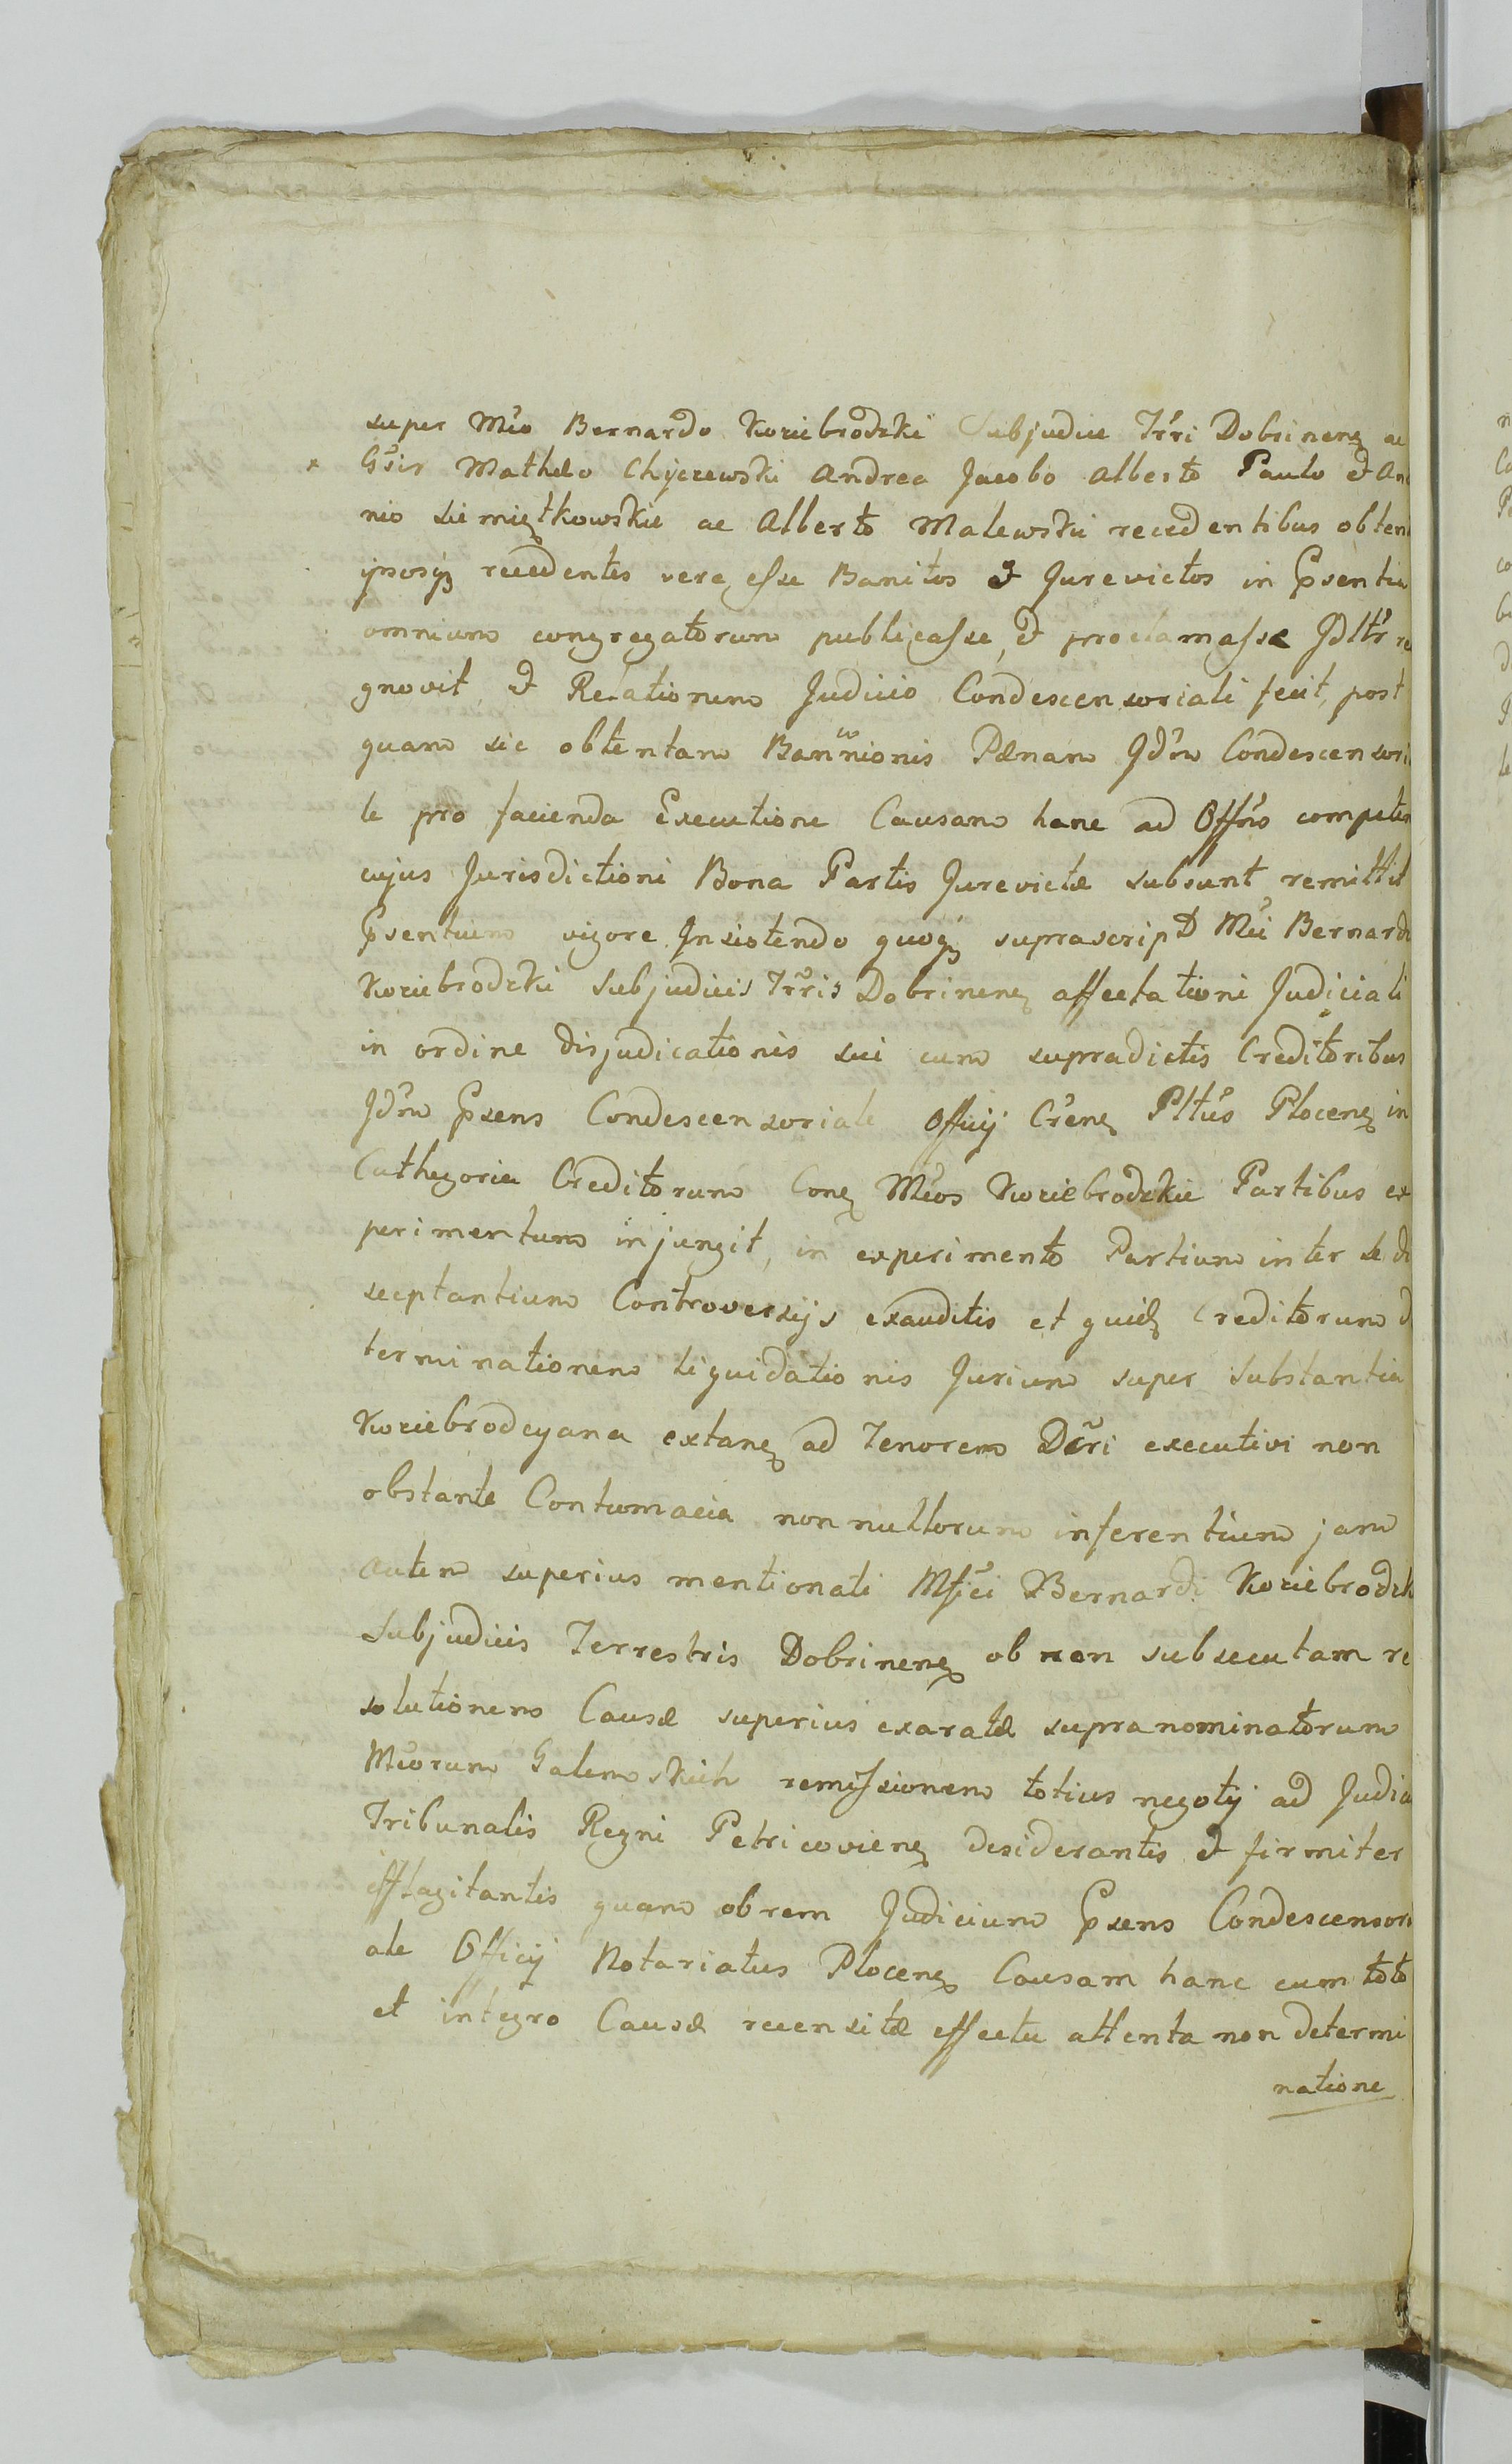 super Mco Bernardo Koziebrodzki Subjudice Trri Dobrinenẹ ac
Gsis Mathæo Chyczewski Andrea Jacobo Alberto Paulo & An
nio Siemiątkowskie ac Alberto Malewski recedentibus obten
ipsosqz recedentes vere esse Banitos & Jurevictos in Pssentia
omnium congregatorum publicasse, & proclamasse Jdltr re
gnovit, & Relationem Judicio Condescensoriali fecit, post
quam sic obtentam Bannionis Pænam Jdm Condescensori
le pro facienda Executione Causam hanc ad Offm competen
cujus Jurisdictioni Bona Partis Jurevictæ subsunt remittit
Psentium vigore Insistendo quoqz suprascript Mci Bernardi
Koziebrodzki Subjudicis Trris Dobrinenẹ affectationi Judiciali
in ordine disjudicationis sui cum supradictis Creditoribus
Jdm Psens Condescensoriale Officij Crenẹ Pltus Plocenẹ in
Cathegoria Creditorum Conẹ Mcos Koziebrodzkie Partibus ex
perimentum injungit, in experimento Partium inter se di
sceptantium Controversijs exauditis et quidẹ Creditorum d
terminationem liquidationis Jurium super Substantia
Koziebrodcyana extanẹ ad Tenorem Dcri executivi non
obstante Contumacia nonnullorum inferentium jam
autem superius mentionati Mfici Bernardi Koziebrodzk
Subjudicis Terrestris Dobrinenẹ ob non subsecutam re
solutionem Causæ superius exaratæ supranominatorum
Mcorum Galemskich remissionem totius negotij ad Judic
Tribunalis Regni Petricovienẹ desiderantis & firmiter
efflagitantis quam obrem Judicium Psens Condescensori
ale Officij Notariatus Plocenẹ Causam hanc cum toto
et integro Causæ recensitæ effectu attenta non determi
natione